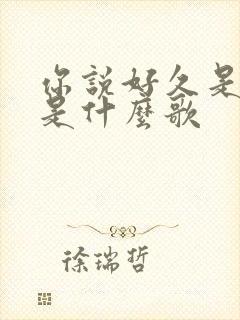 你說好久是
是什麼歌
徐瑞哲